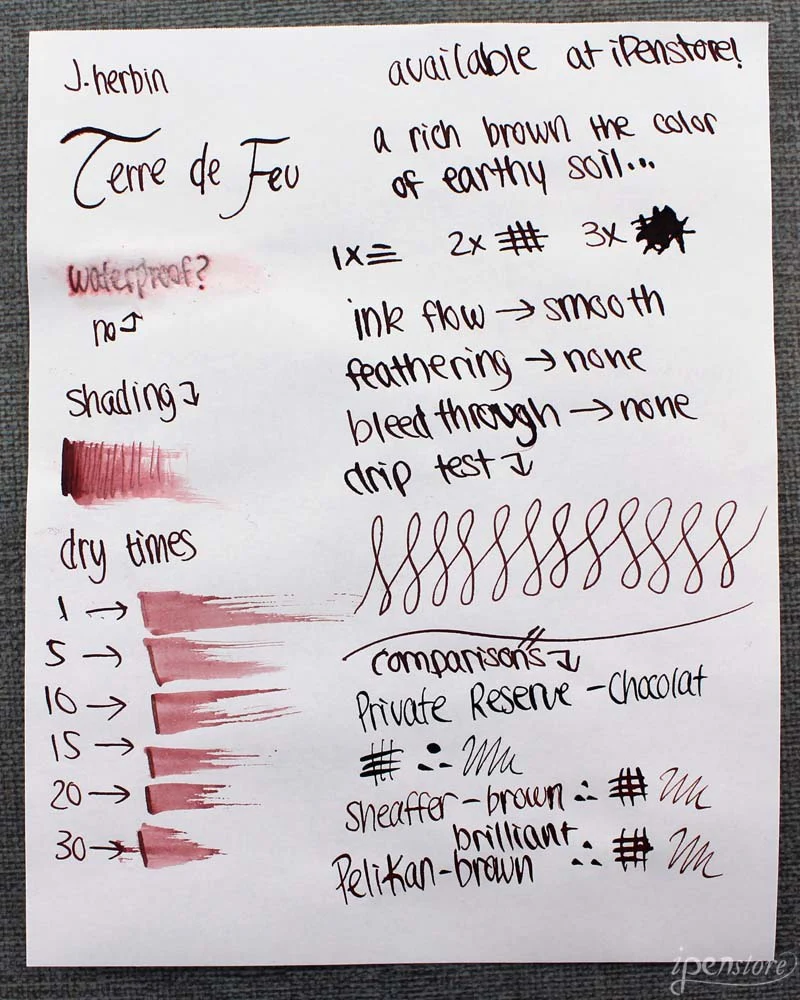 J. herbin
Terre de Feu
waterproof?
no
shading
dry times
1 →
5 →
10 →
15 →
20 →
30 →
available at iPenstore!
a rich brown the color
of earthy soil...
1x 2x 3x
ink flow → smooth
feathering → none
bleed through → none
drip test
comparisons
Private Reserve - Chocolat
sheaffer - brown
brilliant
Pelikan - brown
ipenstore